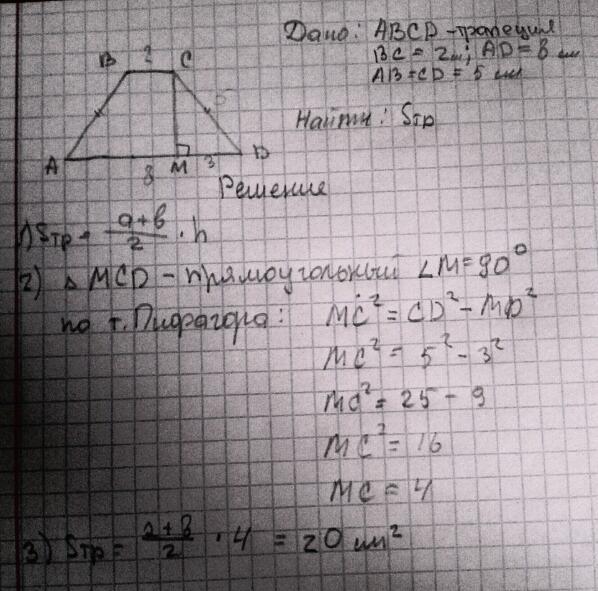 Дано: ABCD - трапеция
BC = 2см; AD = 8 см
AB = CD = 5 см
Найти: Sтр
B 2 C
5
A 8 M 3 D
Решение
1) Sтр = a+b/2 · h
2) △ MCD - прямоугольный ∠M=90°
по т. Пифагора: MC² = CD² - MD²
MC² = 5² - 3²
MC² = 25 - 9
MC² = 16
MC = 4
3) Sтр = 2+8/2 · 4 = 20 см²